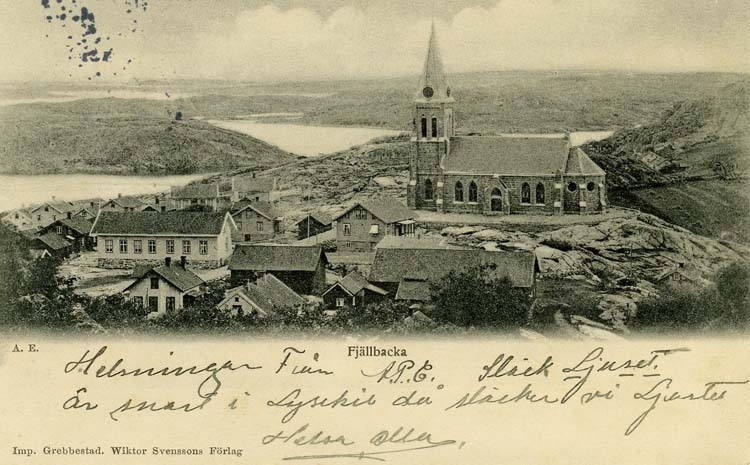 A. E.
Fjällbacka
Helsningar Från A.P.E. Släck Ljuset.
är snart i Lysekil då släcker vi Ljuset
Helsa Alla
Imp. Grebbestad. Wiktor Svenssons Förlag